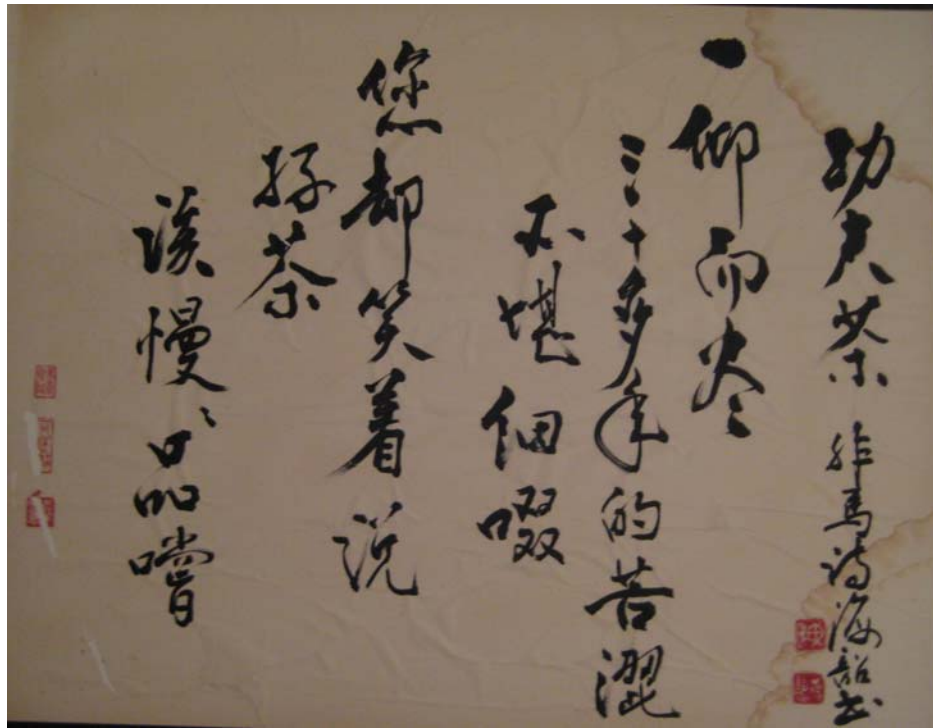 功夫茶 非馬詩海韶书
一仰而尽
三十多年的苦澀
不堪细啜
您却笑着说
好茶
该慢慢品嚐